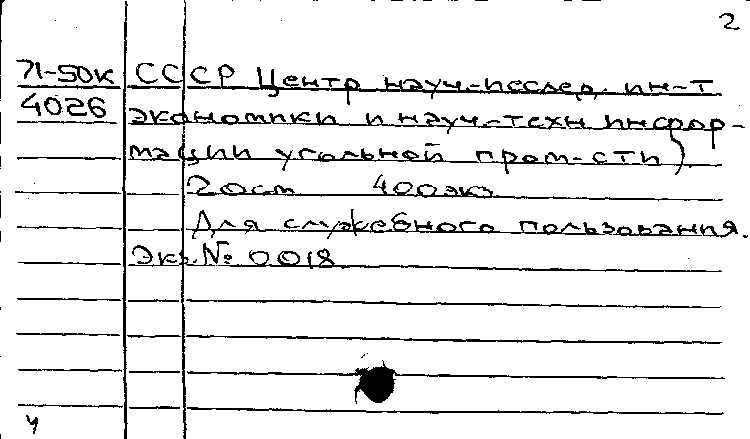 2
71-50к СССР Центр науч-исслед. ин-т
4026 экономики и науч-техн информ-
мации угольной пром-сти)
20см 400экз
Для служебного пользования.
Экз. № 0018
ч